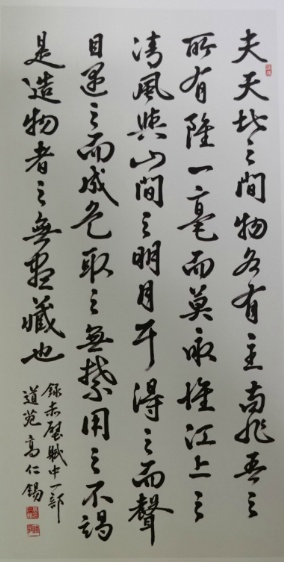 夫天地之間物各有主苟非吾之
所有雖一毫而莫取惟江上之
清風與山間之明月耳得之而聲
目遇之而成色取之無禁用之不竭
是造物者之無盡藏也
錄赤壁賦中一部
道苑高仁錫